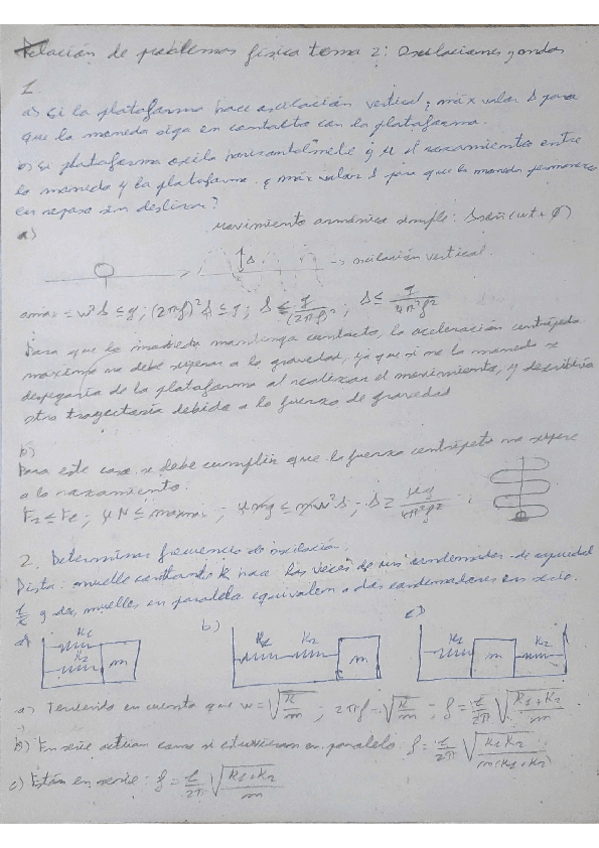 Relación de problemas física tema 2: Oscilaciones y ondas
1.
a) Si la plataforma hace oscilación vertical, ¿máx valor Δ para
que la moneda siga en contacto con la plataforma.
b) Si plataforma oscila horizontalmente y μ el rozamiento entre
la moneda y la plataforma. ¿máx valor Δ para que la moneda permanezca
en reposo sin deslizar?
a) Movimiento armónico simple: Δ señ (wt + φ)
Δ -> oscilación vertical
amax = w²Δ ≤ g; (2πf)²Δ ≤ g; Δ ≤ g/(2πf)²; Δ ≤ g/4π²f²
Para que la moneda mantenga contacto, la aceleración centrípeta
máxima no debe superar a la gravedad, ya que si no la moneda se
despegaría de la plataforma al realizar el movimiento, y describiría
otra trayectoria debido a la fuerza de gravedad
b)
Para este caso se debe cumplir que la fuerza centrípeta no supere
a la rozamiento:
Fr ≤ Fc; μN ≤ mamax; μmg ≤ mw²Δ; Δ ≥ μg/4π²f²
2. Determinar frecuencia de oscilación.
Pista: muelle constante k hace las veces de un condensador de capacidad
1/k y dos muelles en paralelo equivalen a dos condensadores en serie.
a) b) c)
K1 K1 K2 K1 K2
K2 m m m
a) Teniendo en cuenta que w = √(k/m); 2πf = √(k/m); f = 1/2π √((k1+k2)/m)
b) En serie actúan como si estuvieran en paralelo f = 1/2π √(k1k2/m(k1+k2))
c) Están en serie: f = 1/2π √((k1+k2)/m)